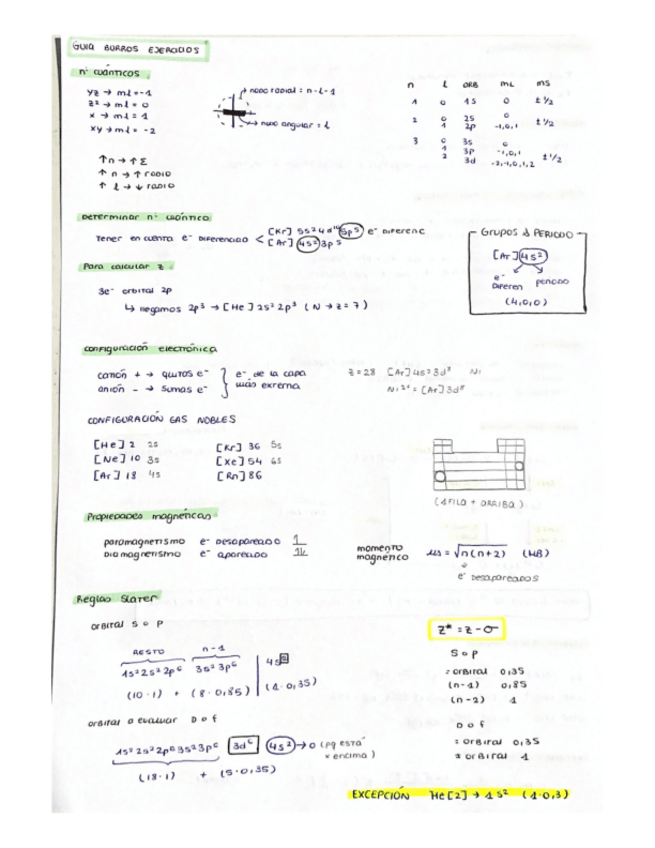 GUIA BURROS EJERCICIOS
nº cuánticos
yz → ml = -1
z² → ml = 0
x → ml = 1
xy → ml = -2
nodo radial = n-l-1
nodo angular = l
n l ORB mL ms
1 0 1s 0 ±1/2
2 0 2s 0 ±1/2
1 2p -1,0,1
3 0 3s 0
1 3p -1,0,1 ±1/2
2 3d -2,-1,0,1,2
↑n → ↑E
↑n → ↑ radio
↑ l → ↓ radio
Determinar nº cuántico
Tener en cuenta e⁻ diferenciado < [Kr] 5s² 4d¹⁰ 5p⁵ e⁻ diferenc
[Ar] 4s² 3p⁵
Grupos & PERIODO
[Ar] 4s²
e⁻ periodo
diferen
(4,0,0)
Para calcular z
3e⁻ orbital 2p
↳ llegamos 2p³ → [He] 2s² 2p³ (N → z = 7)
configuración electrónica
catión + → quitos e⁻ } e⁻ de la capa
anión - → sumas e⁻ más externa
z = 28 [Ar] 4s² 3d⁸ Ni
Ni²⁺ = [Ar] 3d⁸
CONFIGURACIÓN GAS NOBLES
[He] 2 2s [Kr] 36 5s
[Ne] 10 3s [Xe] 54 6s
[Ar] 18 4s [Rn] 86
(1 FILA + ARRIBA)
Propiedades magnéticas
paramagnetismo e⁻ desapareado 1
Diamagnetismo e⁻ apareado 1l
momento
magnético μs = √n(n+2) (MB)
e⁻ desapareados
Reglas Slater
orbital S o P
RESTO n-1
1s² 2s² 2p⁶ 3s² 3p⁶ 4s²
(10·1) + (8·0,85) (1·0,35)
z* = z - σ
S o p
= orbital 0,35
(n-1) 0,85
(n-2) 1
orbital a evaluar D o f
1s² 2s² 2p⁶ 3s² 3p⁶ 3d⁶ 4s² → 0 (pq está
× encima)
(18·1) + (5·0,35)
D o f
= orbital 0,35
≠ orbital 1
EXCEPCIÓN He[2] → 1s² (1·0,3)